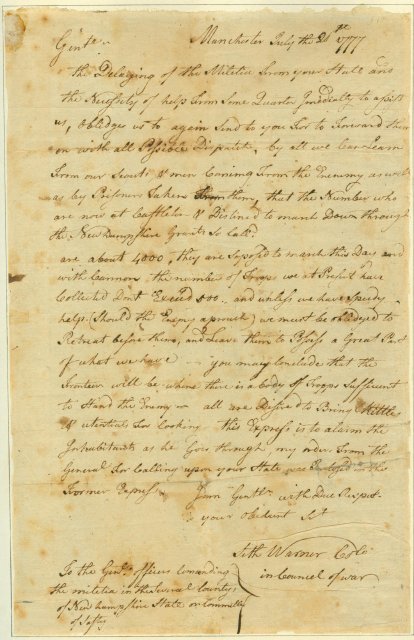 Manchester July the 20th 1777
Gentn
the Delaying of the Militia from your State and
the Necessity of help from Some Quarter Imediatly to assist
us, obliges us to again Send to you For to Forward them
on with all Posible Dispatch, by all we Can Learn
From our Scouts & men Coming From the Enemy as well
as by Prisoners Taken From them, that the Number who
are now at Castleton & Destined to march Down through
the New hampshire Grants So Cald
are about 4000, they are Suposd to march this Day and
with Cannon the number of Troops we at Present have
Collected Dont Exceed 500 and unless we have Speedy
help (Should the Enemy aproach) we must be obliedged to
Retreat before them, and Leave them to Posess a Great Part
of what we have you may Conclude that the
Fronteer will be where there is a body of Troops Sufficient
to Stand the Enemy all are Desired to Bring Kittles
& utensials For Cooking this Express is to alarm the
Inhabitants as he Goes through my order From the
General For Calling upon your State was Inclosed in the
Former Express I am Gentln with Due Respect
your Obedient Set
Seth Warner Colo
in Councel of war
To the Genl officers Comanding
the militia in the Several Countys
of New hampshire State or Committe
of Safty